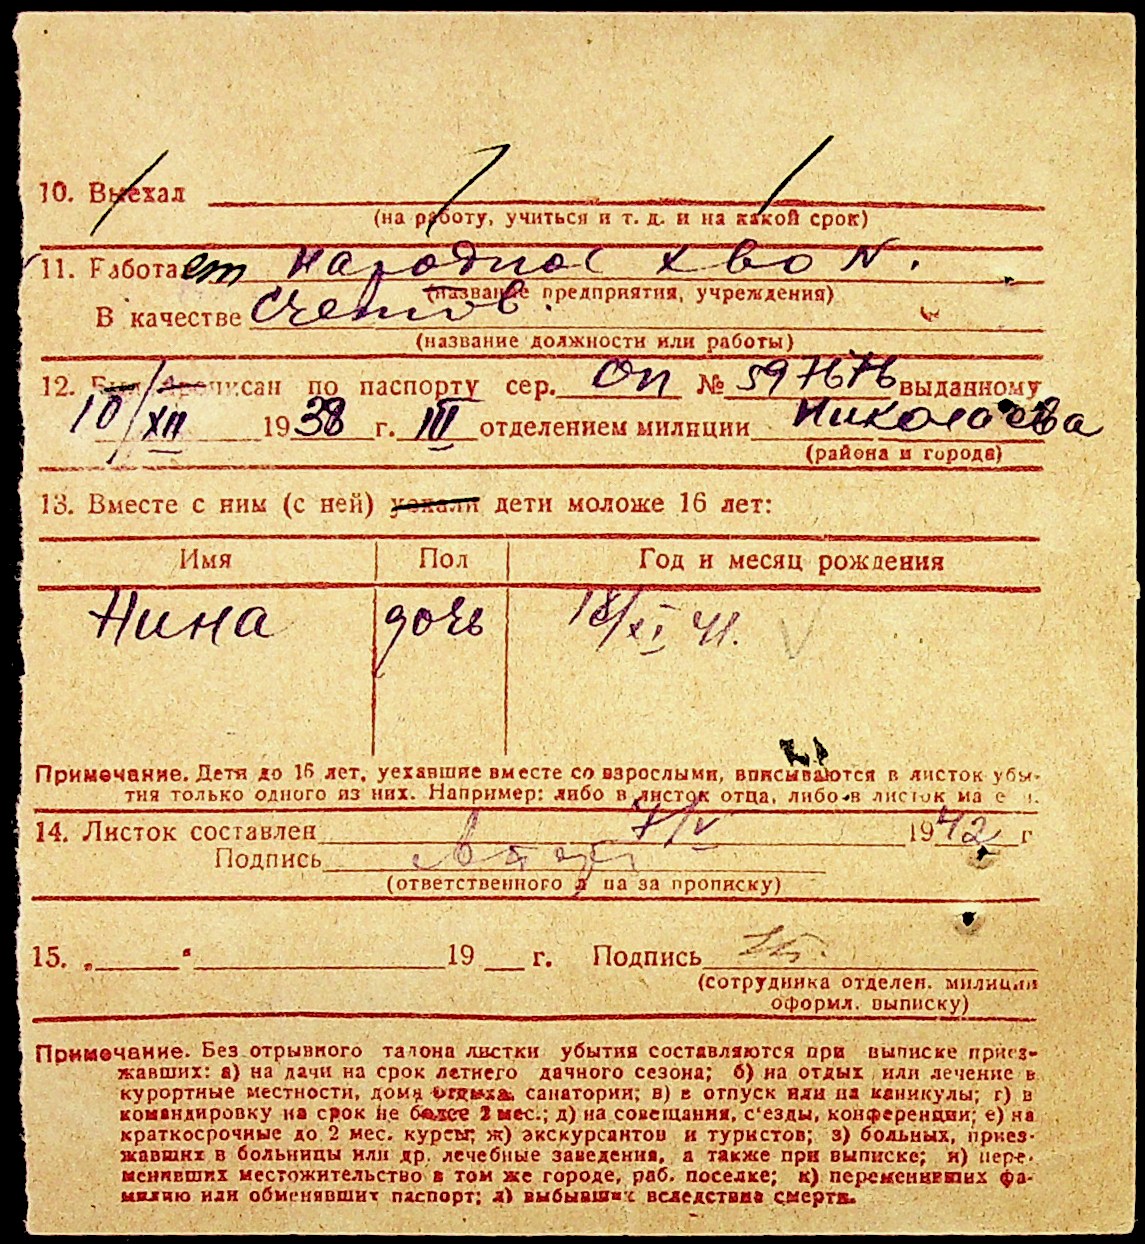 10. Выехал
(на работу, учиться и т. д. и на какой срок)
11. Работает народное х-во N.
(название предприятия, учреждения)
В качестве Счетов.
(название должности или работы)
12. Был прописан по паспорту сер. ОП № 597676 выданному
10/XII 1938 г. III отделением милиции Николаева
(района и города)
13. Вместе с ним (с ней) уехали дети моложе 16 лет:
Имя Пол Год и месяц рождения
Нина дочь 18/XI 41.
Примечание. Дети до 16 лет, уехавшие вместе со взрослыми, вписываются в листок убы-
тия только одного из них. Например: либо в листок отца, либо в листок
14. Листок составлен 7/V 1942 г
Подпись
(ответственного л ца за прописку)
15. „ “ 19 г. Подпись
(сотрудника отделен. милиции
оформл. выписку)
Примечание. Без отрывного талона листки убытия составляются при выписке приез-
жавших: а) на дачи на срок летнего дачного сезона; б) на отдых или лечение в
курортные местности, дома отдыха, санатории; в) в отпуск или на каникулы; г) в
командировку на срок не более 2 мес.; д) на совещания, с'езды, конференции; е) на
краткосрочные до 2 мес. курсы; ж) экскурсантов и туристов; з) больных, приез-
жавших в больницы или др. лечебные заведения, а также при выписке; и) пере-
менивших местожительство в том же городе, раб. поселке; к) переменивших фа-
милию или обменявших паспорт; л) выбывших вследствие смерти.